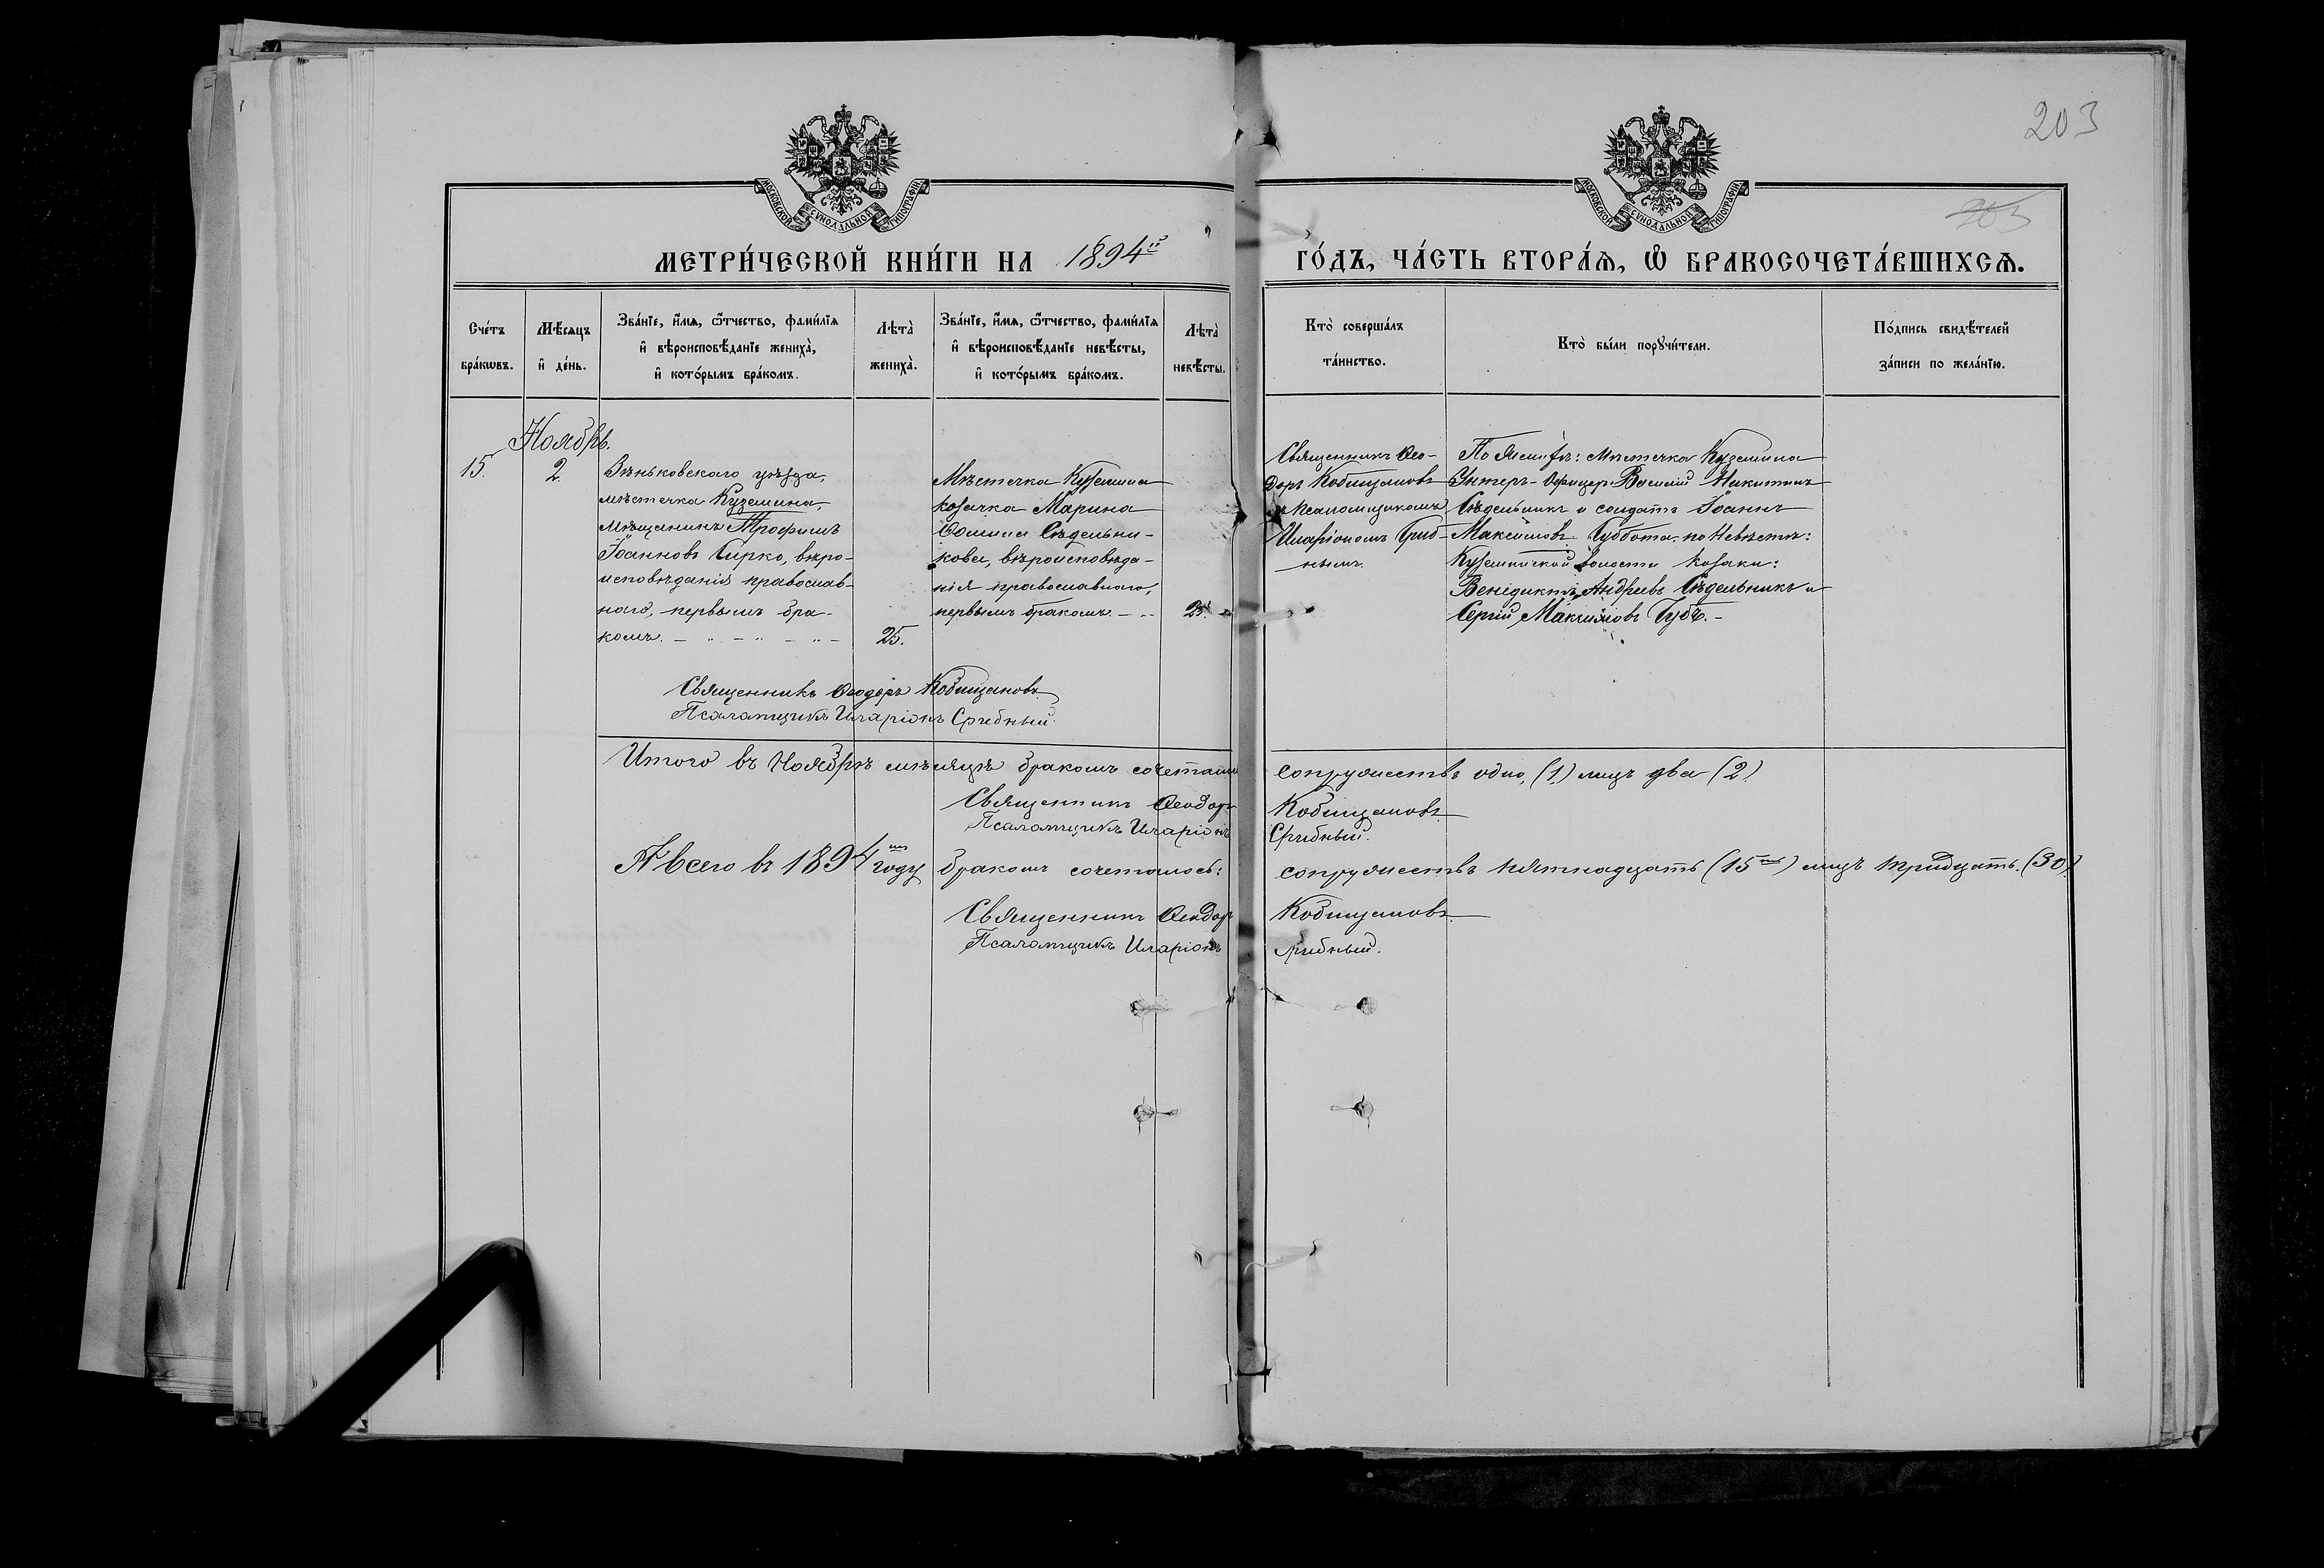 203
203
МОСКОВСКОЙ СѴНОДАЛЬНОЙ ТИПОГРАФІИ
МОСКОВСКОЙ СѴНОДАЛЬНОЙ ТИПОГРАФІИ
МЕТРИ́ЧЕСКОЙ КНИ́ГИ НА 1894й
ГО́ДЪ, ЧА́СТЬ ВТОРА́Ѧ, Ѽ БРАКОСОЧЕТА́ВШИХСѦ.
Сче́тъ бра́кѡвъ.
Мѣ́сяцъ и҆ де́нь.
Зва́нїе, и҆́мѧ, ѻ҆́тчество, фами́лїѧ и҆ вѣроисповѣ́данїе жениха̀, и҆ кото́рымъ бра́комъ.
Лѣта̀ жениха̀.
Зва́нїе, и҆́мѧ, ѻ҆́тчество, фами́лїѧ и҆ вѣроисповѣ́данїе невѣ́сты, и҆ кото́рымъ бра́комъ.
Лѣта̀ невѣ́сты.
Кто̀ соверша́лъ та́инство.
Кто̀ бы́ли порꙋчи́тели.
По́дпись свидѣ́телей за́писи по жела́нїю.
Ноябрь.
15.
2.
Зѣньковскаго уѣзда,
мѣстечка Куземина,
мѣщанинъ Трофимъ
Іоанновъ Сирко, вѣро-
исповѣданія православ-
наго, первымъ бра-
комъ. –
25.
Мѣстечка Куземина
козачка Марина
Ѳомина Сѣдельни-
кова, вѣроисповѣда-
нія православнаго,
первымъ бракомъ. –
Священникъ Ѳео-
доръ Кобищановъ
псаломщикомъ
Иларіономъ Сриб-
нымъ.
По Женихѣ: мѣстечка Куземина
Унтеръ-Офицеръ Василій Никитинъ
Сѣдельникъ и солдатъ Іоаннъ
Максимовъ Суббота. по Невѣстѣ:
Куземинской волости козаки:
Венедиктъ Андреевъ Сѣдельникъ и
Сергій Максимовъ Губъ. –
Священникъ Ѳеодоръ Кобищановъ.
Псаломщикъ Иларіонъ Срибный.
Итого въ Ноябрѣ мѣсяцѣ бракомъ сочеталось
сопружествъ одно, (1) лицъ два (2)
Священникъ Ѳеодоръ Кобищановъ.
Псаломщикъ Иларіонъ Срибный.
А всего въ 1894мъ году бракомъ сочеталось:
сопружествъ пятнадцать (15ть) лицъ тридцать. (30)
Священникъ Ѳеодоръ Кобищановъ.
Псаломщикъ Иларіонъ Срибный.